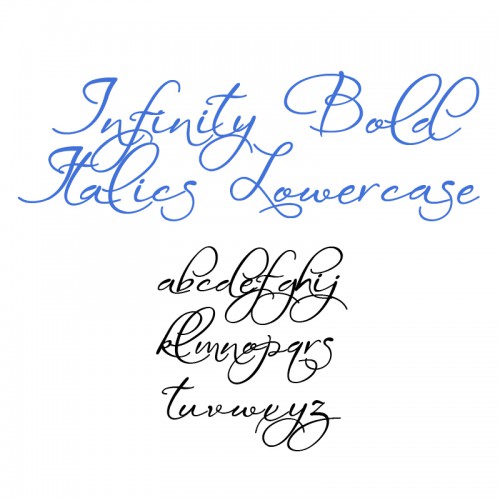 Infinity Bold
Italics Lowercase
abcdefghij
klmnopqrs
tuvwxyz